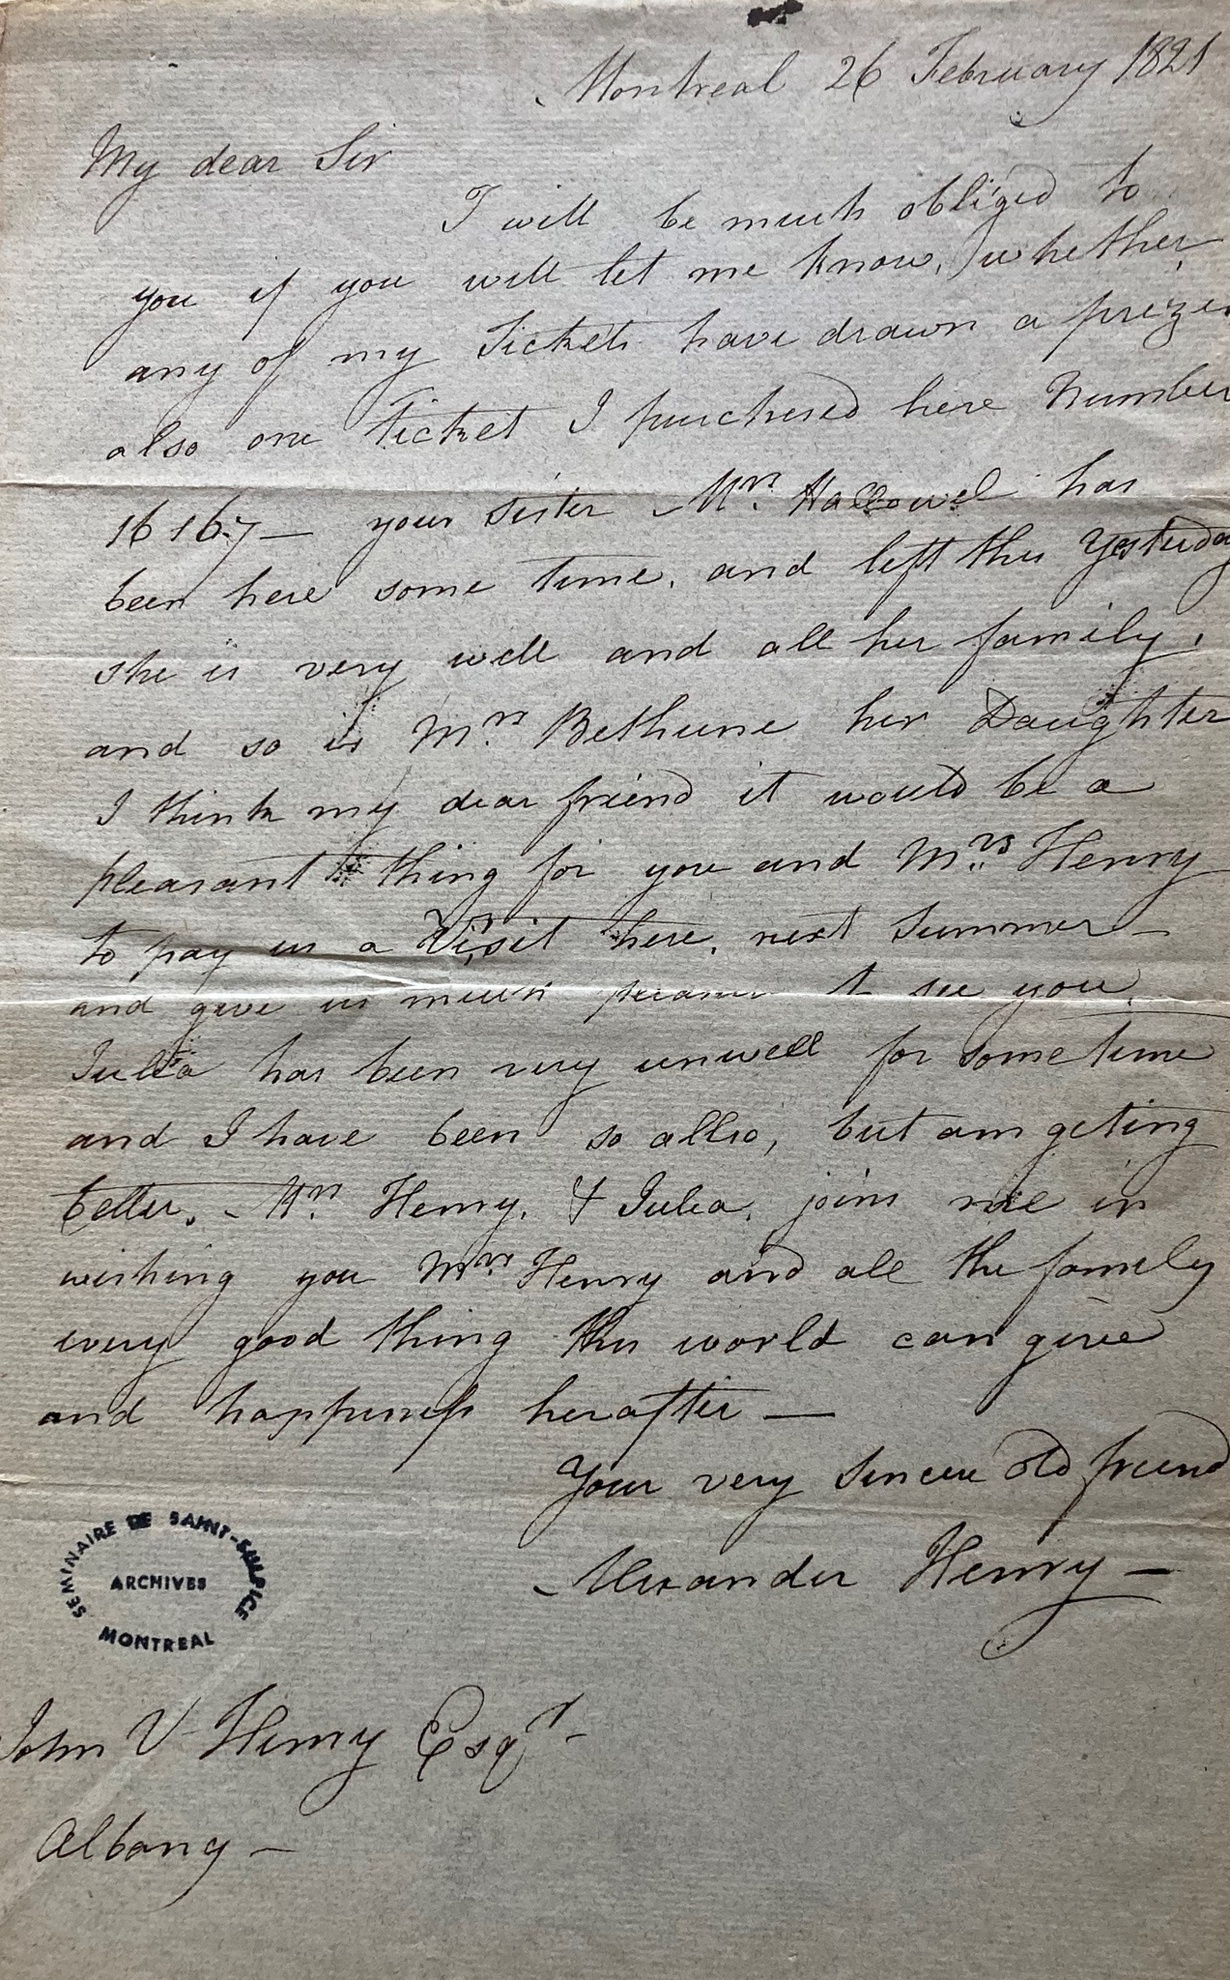 Montreal 26 February 1821
My dear Sir
I will be much obliged to
you if you will let me know, whether
any of my Tickets have drawn a prize
also one Ticket I purchesed here Number
16167— your sister Mrs. Hallowel has
been here some time, and left this Yesterda
she is very well and all her family,
and so is Mrs. Bethune her Daughter
I think my dear friend it would be a
pleasant thing for you and Mrs. Henry
to pay us a Visit here, next Summer—
and give us much pleasure to see you,
Julia has been very unwell for some time
and I have been so allso, but am geting
better. Mrs. Henry, & Julia, joins me in
wishing you Mrs. Henry and all the family
every good thing this world can give
and happiness herafter—
Your very sincere old friend
Alexander Henry—
SEMINAIRE DE SAINT-SULPICE
ARCHIVES
MONTREAL
John V Henry Esqr—
Albany—